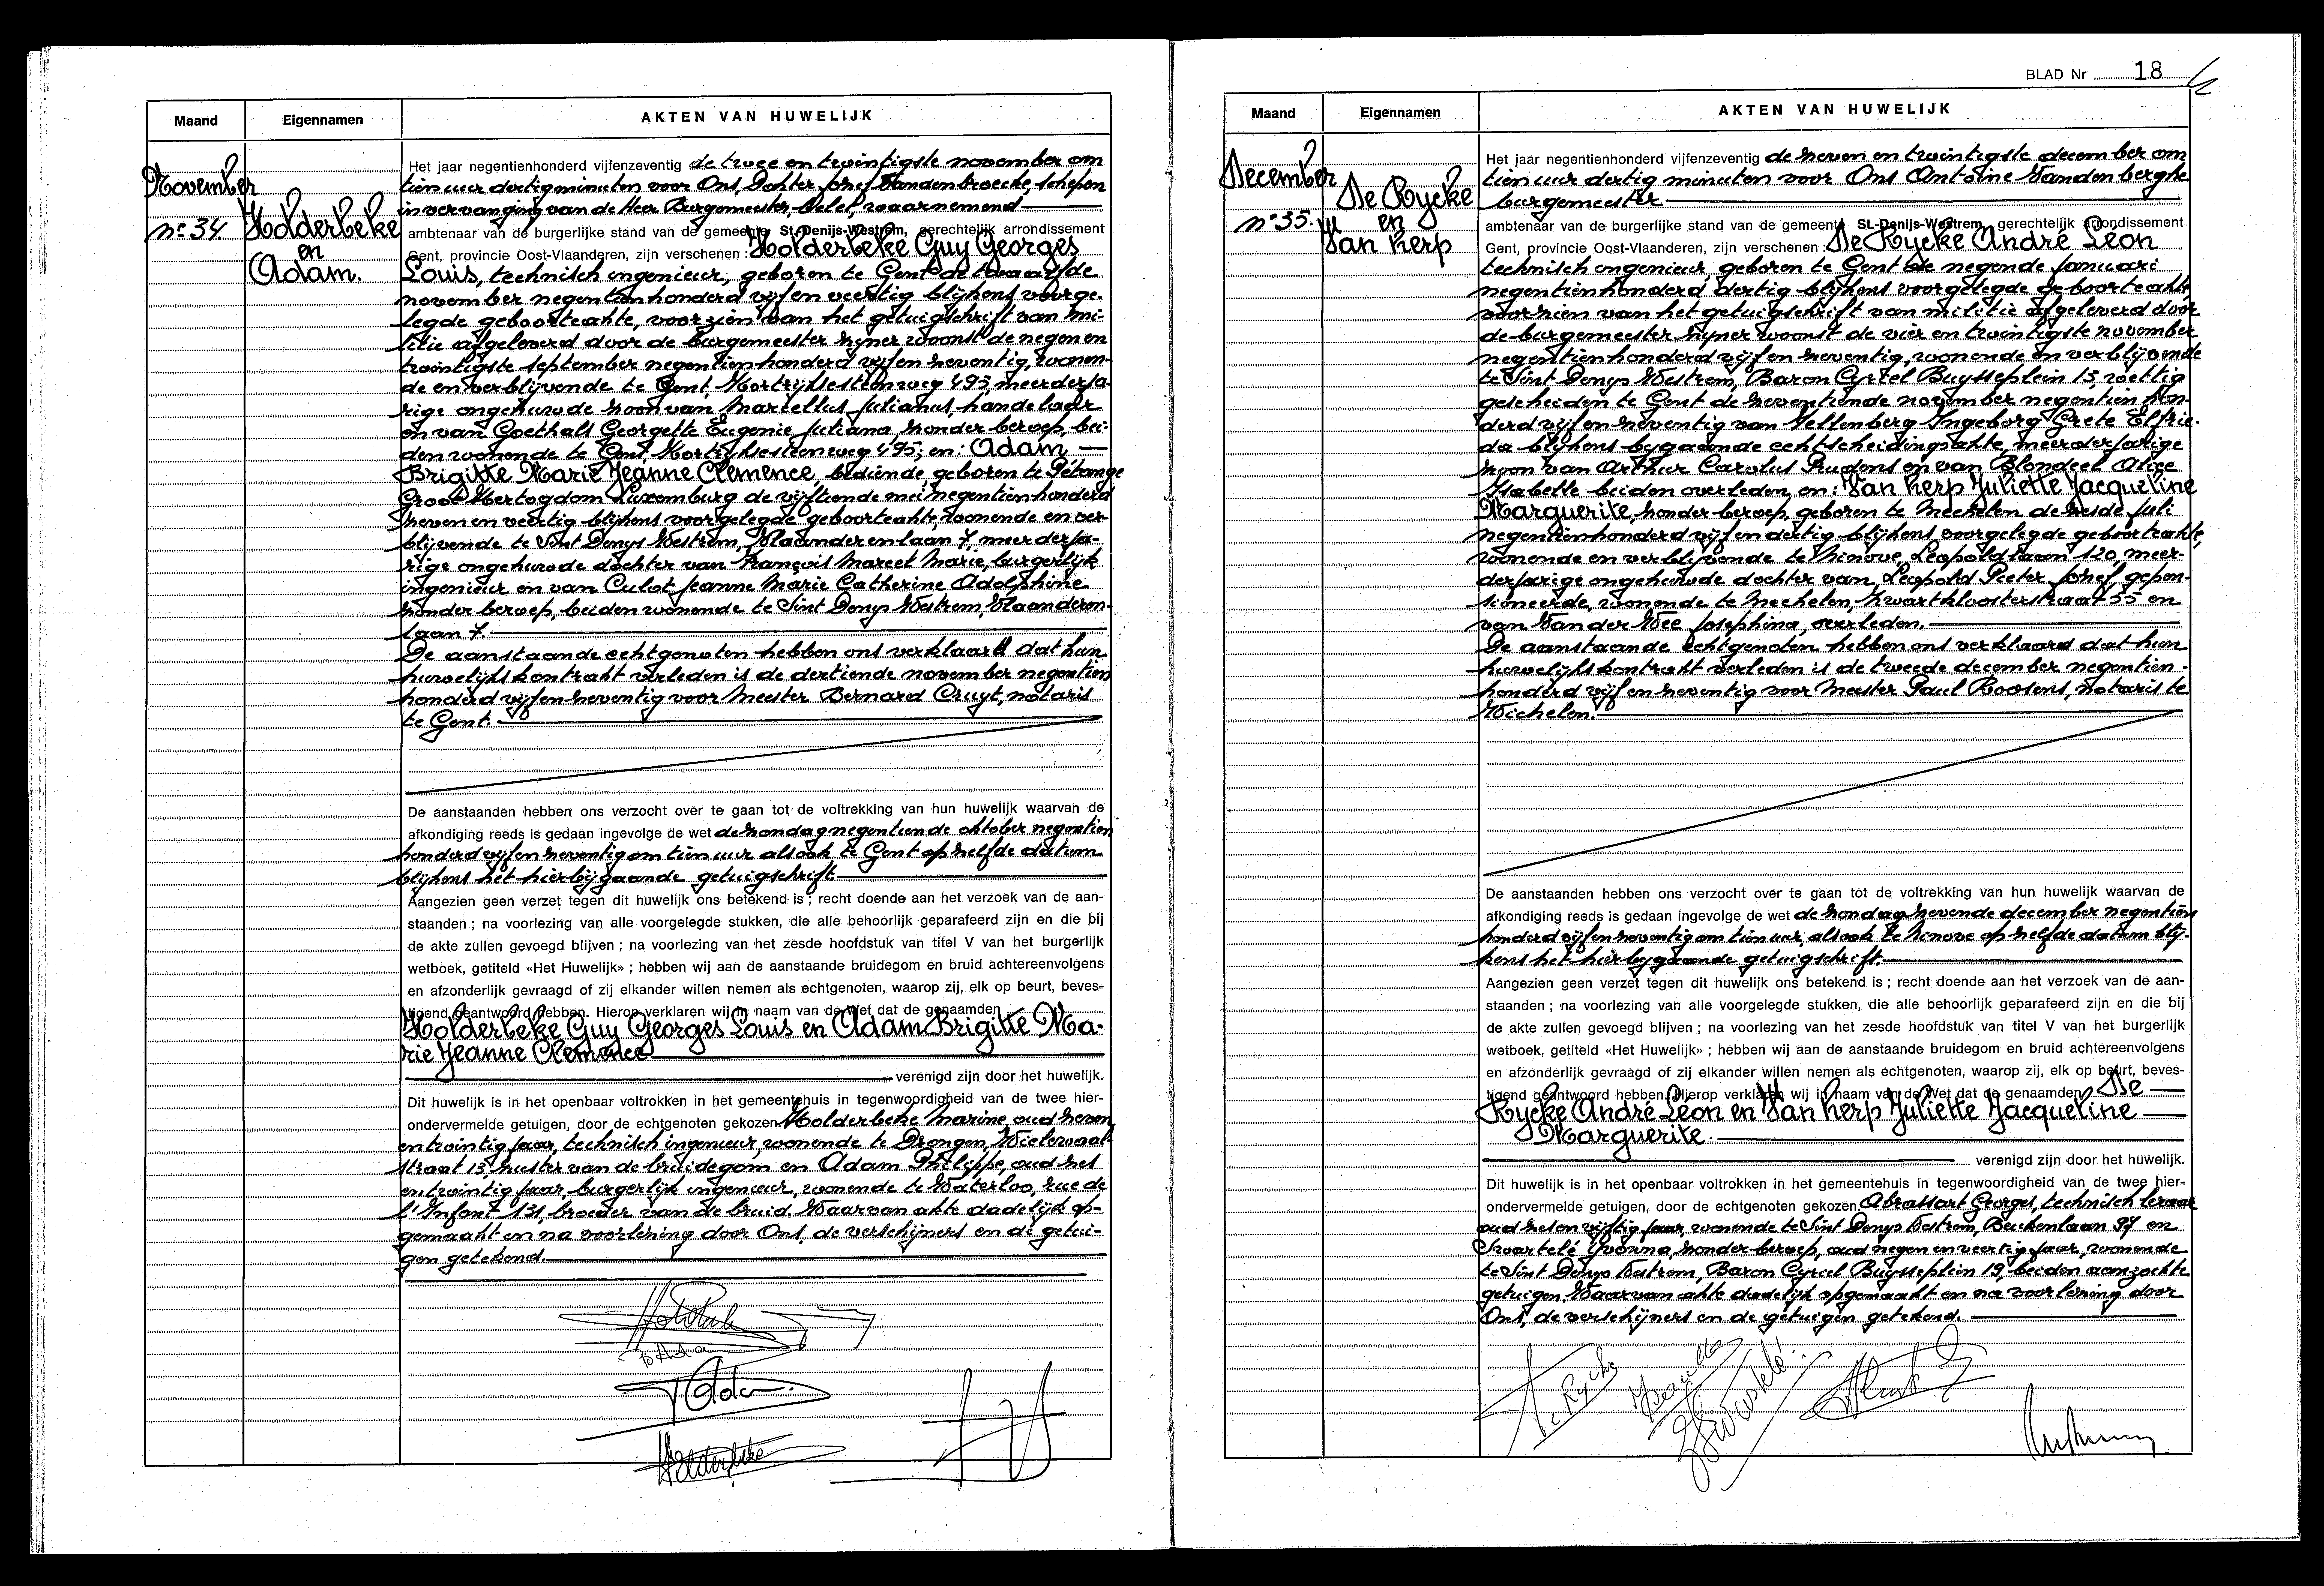 Maand
Eigennamen
AKTEN VAN HUWELIJK
November
n° 34.
Holderbeke
en
Adam.
Het jaar negentienhonderd vijfenzeventig de twee en twintigste november om
tien uur dertig minuten voor Ons, Dokter Jozef Vandenbroecke, schepen
in vervanging van de Heer Burgemeester, belet, waarnemend
ambtenaar van de burgerlijke stand van de gemeente St-Denijs-Westrem, gerechtelijk arrondissement
Gent, provincie Oost-Vlaanderen, zijn verschenen : Holderbeke Guy Georges
Louis, technisch ingenieur, geboren te Gent de twaalfde
november negentienhonderd vijf en veertig blijkens voorge-
legde geboorteakte, voorzien van het getuigschrift van mi-
litie afgeleverd door de burgemeester zijner woonst de negen en
twintigste september negentienhonderd vijf en zeventig, wonen-
de en verblijvende te Gent, Kortrijksesteenweg 495, meerderja-
rige ongehuwde zoon van Marcellus Julianus handelaar
en van Goethals Georgette Eugenie Juliana zonder beroep, bei-
den wonende te Gent, Kortrijksesteenweg 495; en : Adam
Brigitte Marie Jeanne Clemence, bediende geboren te Pétange
Groot Hertogdom Luxemburg de vijftiende mei negentienhonderd
zeven en veertig blijkens voorgelegde geboorteakte, wonende en ver-
blijvende te Sint Denys Westrem, Vlaanderenlaan 7, meerderja-
rige ongehuwde dochter van François Marcel Marie, burgerlijk
ingenieur en van Culot Jeanne Marie Catherine Adolphine
zonder beroep, beiden wonende te Sint Denys Westrem, Vlaanderen-
laan 7.
De aanstaande echtgenoten hebben ons verklaard dat hun
huwelijkskontrakt verleden is de dertiende november negentien
honderd vijf en zeventig voor Meester Bernard Cruyt, notaris
te Gent.
De aanstaanden hebben ons verzocht over te gaan tot de voltrekking van hun huwelijk waarvan de
afkondiging reeds is gedaan ingevolge de wet de zondag negentiende oktober negentien
honderd vijf en zeventig om tien uur alsook te Gent op zelfde datum
blijkens het hierbijgaande getuigschrift.
Aangezien geen verzet tegen dit huwelijk ons betekend is ; recht doende aan het verzoek van de aan-
staanden ; na voorlezing van alle voorgelegde stukken, die alle behoorlijk geparafeerd zijn en die bij
de akte zullen gevoegd blijven ; na voorlezing van het zesde hoofdstuk van titel V van het burgerlijk
wetboek, getiteld «Het Huwelijk» ; hebben wij aan de aanstaande bruidegom en bruid achtereenvolgens
en afzonderlijk gevraagd of zij elkander willen nemen als echtgenoten, waarop zij, elk op beurt, beves-
tigend geantwoord hebben. Hierop verklaren wij in naam van de Wet dat de genaamden
Holderbeke Guy Georges Louis en Adam Brigitte Ma-
rie Jeanne Clemence
verenigd zijn door het huwelijk.
Dit huwelijk is in het openbaar voltrokken in het gemeentehuis in tegenwoordigheid van de twee hier-
ondervermelde getuigen, door de echtgenoten gekozen Holderbeke Marine, oud zeven
en twintig jaar, technisch ingenieur, wonende te Drongen, Wielewaal-
straat 13, zuster van de bruidegom en Adam Philippe, oud zes
en twintig jaar, burgerlijk ingenieur, wonende te Waterloo, rue de
l'Infant 131, broeder van de bruid. Waarvan akte dadelijk op-
gemaakt en na voorlezing door Ons, de verschijners en de getui-
gen getekend.
B Ada
Holderbeke
BLAD Nr 18
Maand
Eigennamen
AKTEN VAN HUWELIJK
December
n° 35.
De Rycke
en
Van Kerp
Het jaar negentienhonderd vijfenzeventig de zeven en twintigste december om
tien uur dertig minuten voor Ons Antoine Vandenberghe
burgemeester
ambtenaar van de burgerlijke stand van de gemeente St.-Denijs-Westrem, gerechtelijk arrondissement
Gent, provincie Oost-Vlaanderen, zijn verschenen : De Rycke André Leon
technisch ingenieur, geboren te Gent de negende januari
negentienhonderd dertig blijkens voorgelegde geboorteakte
voorzien van het getuigschrift van militie afgeleverd door
de burgemeester zijner woonst de vier en twintigste november
negentienhonderd vijf en zeventig, wonende en verblijvende
te Sint Denys Westrem, Baron Cyriel Buysseplein 13, wettig
gescheiden te Gent de zeventiende november negentien hon-
derd vijf en zeventig van Vellenberg Ingeborg Grete Elfrie-
da blijkens bijgaande echtscheidingsakte, meerderjarige
zoon van Arthur Carolus Prudens en van Blondeel Alice
Isabelle beiden overleden, en : Van Kerp Juliette Jacqueline
Marguerite, zonder beroep, geboren te Mechelen de zesde juli
negentienhonderd vijf en dertig blijkens voorgelegde geboorteakte,
wonende en verblijvende te Ninove, Leopoldlaan 120, meer-
derjarige ongehuwde dochter van Leopold Pieter Jozef, gepen-
sioneerde, wonende te Mechelen, Zwartkloosterstraat 55 en
van Van der Wee Josephina, overleden.
De aanstaande echtgenoten hebben ons verklaard dat hun
huwelijkskontrakt verleden is de tweede december negentien-
honderd vijf en zeventig voor Meester Paul Roosens, notaris te
Wichelen.
De aanstaanden hebben ons verzocht over te gaan tot de voltrekking van hun huwelijk waarvan de
afkondiging reeds is gedaan ingevolge de wet de zondag zevende december negentien
honderd vijf en zeventig om tien uur, alsook te Ninove op zelfde datum blij-
kens het hierbijgaande getuigschrift.
Aangezien geen verzet tegen dit huwelijk ons betekend is ; recht doende aan het verzoek van de aan-
staanden ; na voorlezing van alle voorgelegde stukken, die alle behoorlijk geparafeerd zijn en die bij
de akte zullen gevoegd blijven ; na voorlezing van het zesde hoofdstuk van titel V van het burgerlijk
wetboek, getiteld «Het Huwelijk» ; hebben wij aan de aanstaande bruidegom en bruid achtereenvolgens
en afzonderlijk gevraagd of zij elkander willen nemen als echtgenoten, waarop zij, elk op beurt, beves-
tigend geantwoord hebben. Hierop verklaren wij in naam van de Wet dat de genaamden De
Rycke André Leon en Van Kerp Juliette Jacqueline
Marguerite.
verenigd zijn door het huwelijk.
Dit huwelijk is in het openbaar voltrokken in het gemeentehuis in tegenwoordigheid van de twee hier-
ondervermelde getuigen, door de echtgenoten gekozen. Abrassart Georges, technisch leraar
oud zes en vijftig jaar, wonende te Sint Denys Westrem, Beukenlaan 94 en
Swartelé Yvonna, zonder beroep, oud negen en veertig jaar, wonende
te Sint Denys Westrem, Baron Cyriel Buysseplein 19, beiden aanzochte
getuigen. Waarvan akte dadelijk opgemaakt en na voorlezing door
Ons, de verschijners en de getuigen getekend.
De Rycke
Swartelé